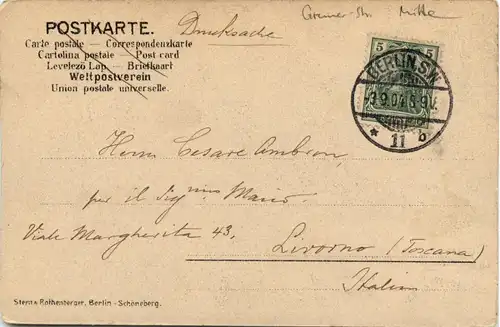 POSTKARTE. Drucksache
Carte postale — Correspondenzkarte
Cartolina postale — Post card
Levelező Lap — Briefkaart
Weltpostverein
Union postale universelle.
5 5
BERLIN S.W.
* 11 b
Herrn Cesare Ambron,
per il Sig
Viale Margherita 43,
Livorno (Toscana)
Italien
Stern & Rothenberger, Berlin - Schöneberg.